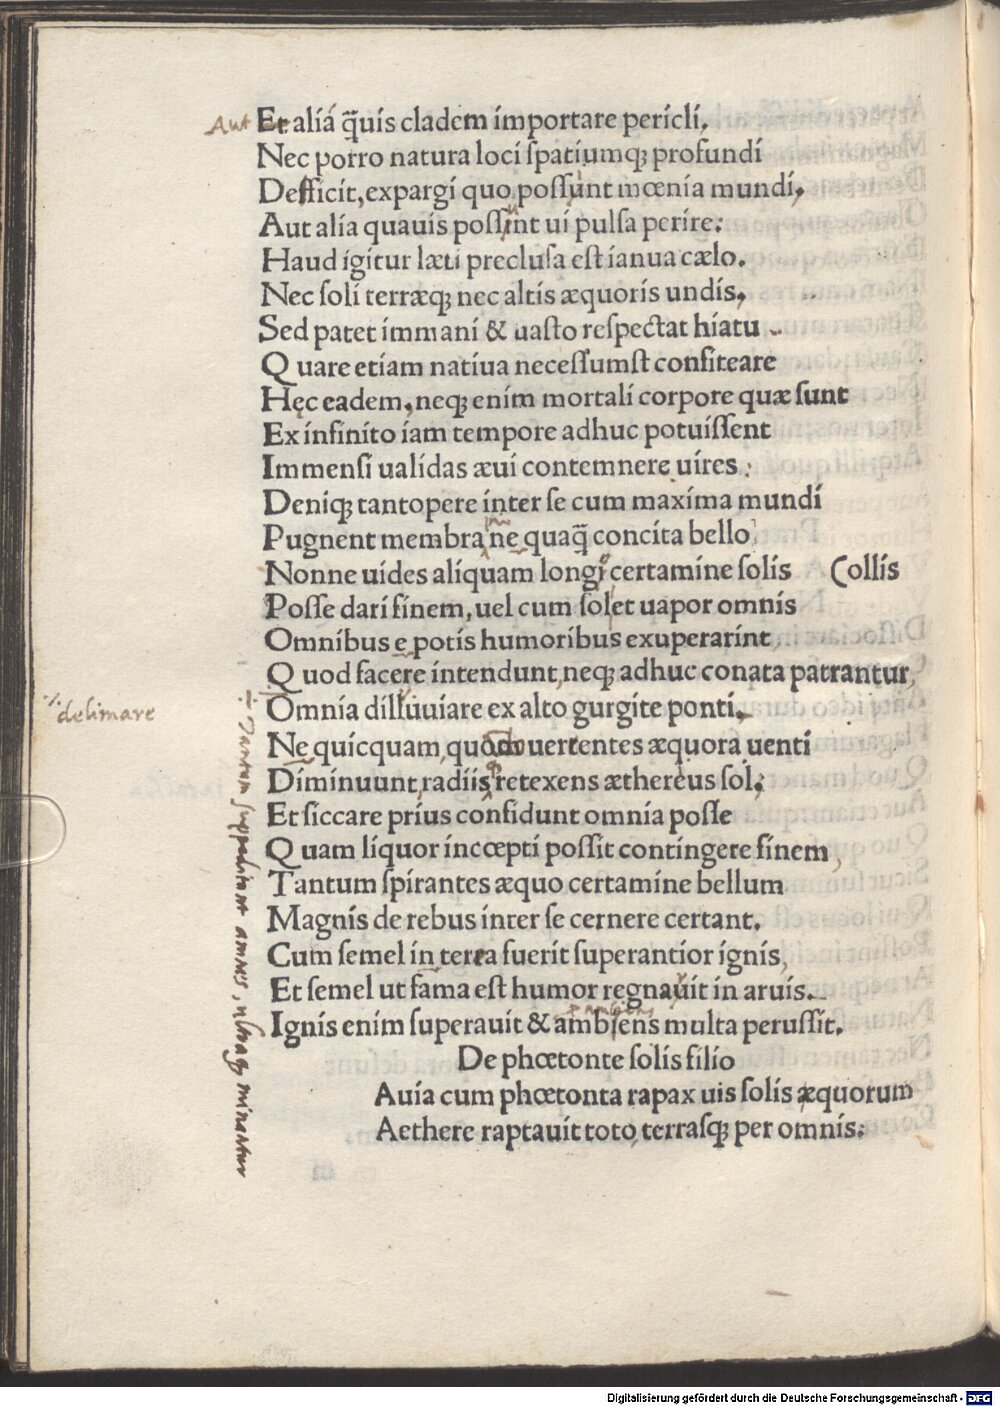 Aut
Et aliá q̄uis cladem importare pericli.
Nec porro natura loci spatiumqȝ profundi
Defficit, expargi quo possunt mœnia mundi,
Aut alia quauis possint ui pulsa perire:
Haud igitur læti preclusa est ianua cælo.
Nec soli terræqȝ nec altis æquoris undis,
Sed patet immani & uasto respectat hiatu
Q uare etiam natiua necessumst confiteare
Hęc eadem, neqȝ enim mortali corpore quæ sunt
Ex infinito iam tempore adhuc potuissent
Immensi ualidas æui contemnere uires:
Deniqȝ tantopere inter se cum maxima mundi
Pugnent membra ne quaq̄ concita bello
Nonne uides aliquam longi certamine solis (ollis
Posse dari finem, uel cum solet uapor omnis
Omnibus e potis humoribus exuperarint
Q uod facere intendunt, neqȝ adhuc conata patrantur,
delimare
Omnia dilluuiare ex alto gurgite ponti.
÷ Tantum suppeditant amnes, ultraqȝ minantur
Ne quicquam, quod uerrentes æquora uenti
Diminuunt, radiis retexens æthereus sol:
Et siccare prius confidunt omnia posse
Q uam liquor incœpti possit contingere finem
Tantum spirantes æquo certamine bellum
Magnis de rebus inter se cernere certant.
Cum semel in terra fuerit superantior ignis,
Et semel ut fama est humor regnauit in aruis.
Ignis enim superauit & ambiens multa perussit.
De phœtonte solis filio
Auia cum phœtonta rapax uis solis æquorum
Aethere raptauit toto, terrasqȝ per omnis:
Digitalisierung gefördert durch die Deutsche Forschungsgemeinschaft - DFG